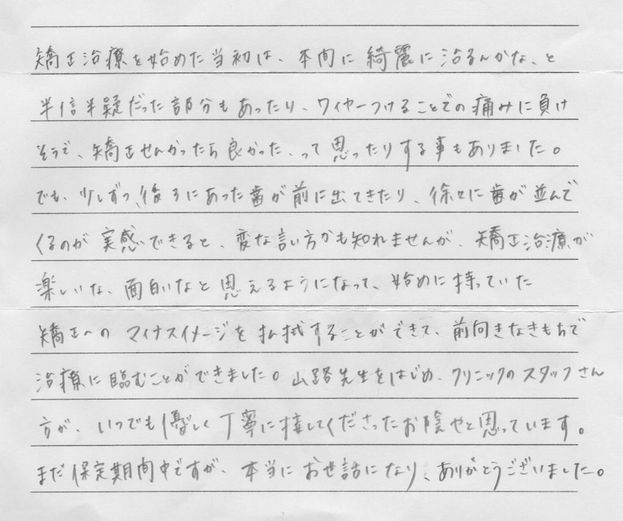 矯正治療を始めた当初は、本同に綺麗に治るんかな、と
半信半疑だった部分もあったり、ワイヤーつけることでの痛みに負け
そうで、矯正せんかったら良かった、って思ったりする事もありました。
でも、少しずつ、後ろにあった歯が前に出てきたり、徐々に歯が並んで
くるのが実感できると、変な言い方かも知れませんが、矯正治療が
楽しいな、面白いなと思えるようになって、始めに持っていた
矯正へのマイナスイメージを払拭することができて、前向きなきもちで
治療に臨むことができました。山路先生をはじめ、クリニックのスタッフさん
方が、いつでも優しく丁寧に接してくださったお陰やと思っています。
まだ保定期間中ですが、本当にお世話になり、ありがとうございました。